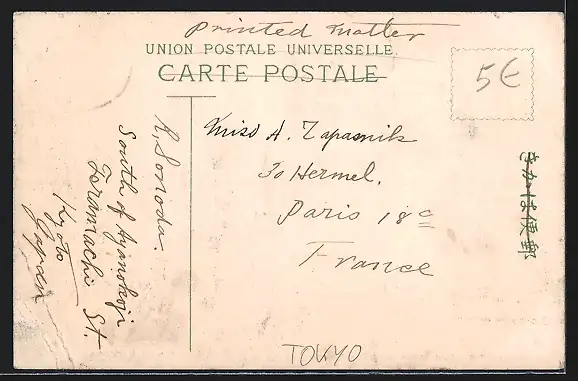 Printed Matter
UNION POSTALE UNIVERSELLE.
CARTE POSTALE
5€
Miss A. Zapasnik
30 Hermel.
Paris 18e
France
R. Sonoda.
South of Ayanokoji
Teramachi St.
Kyoto
Japan
きかは便郵
TOKYO